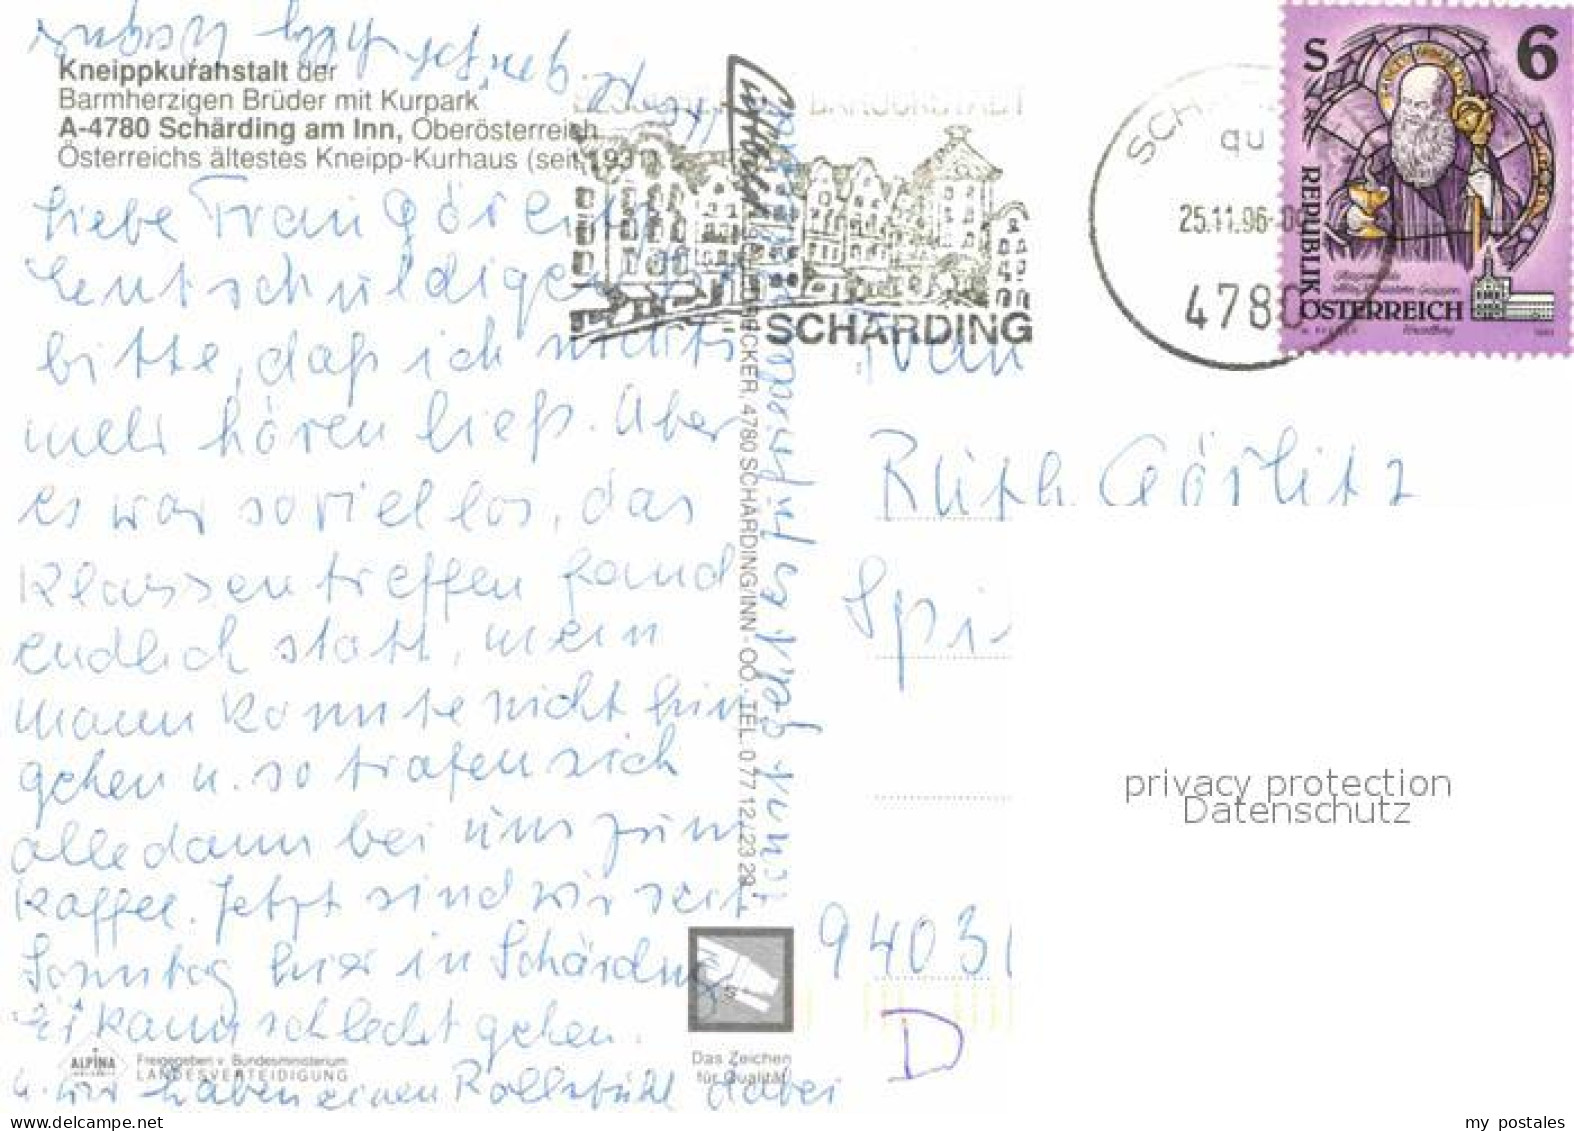 Kneippkuranstalt der
Barmherzigen Brüder mit Kurpark
A-4780 Schärding am Inn, Oberösterreich
Österreichs ältestes Kneipp-Kurhaus (seit 1931)
Liebe Frau Görlitz
Entschuldigen Sie
bitte, daß ich nichts
mehr hören ließ. Aber
es war soviel los, das
Klassentreffen fand
endlich statt, mein
Mann konnte nicht hin
gehen u. so trafen sich
alle dann bei uns zum
Kaffee. Jetzt sind wir seit
Sonntag hier in Schärding
Er kann schlecht gehen.
u. wir haben einen Rollstuhl dabei
ALPINA
Freigegeben v. Bundesministerium
LANDESVERTEIDIGUNG
Das Zeichen
für Qualität
4780 SCHÄRDING/INN - OÖ., TEL. 0 77 12 / 23 29
BAROCKSTADT
SCHÄRDING
25.11.96
4780
S 6
REPUBLIK
ÖSTERREICH
Frau
Ruth Görlitz
Spi
94031
D
privacy protection
Datenschutz
my postales